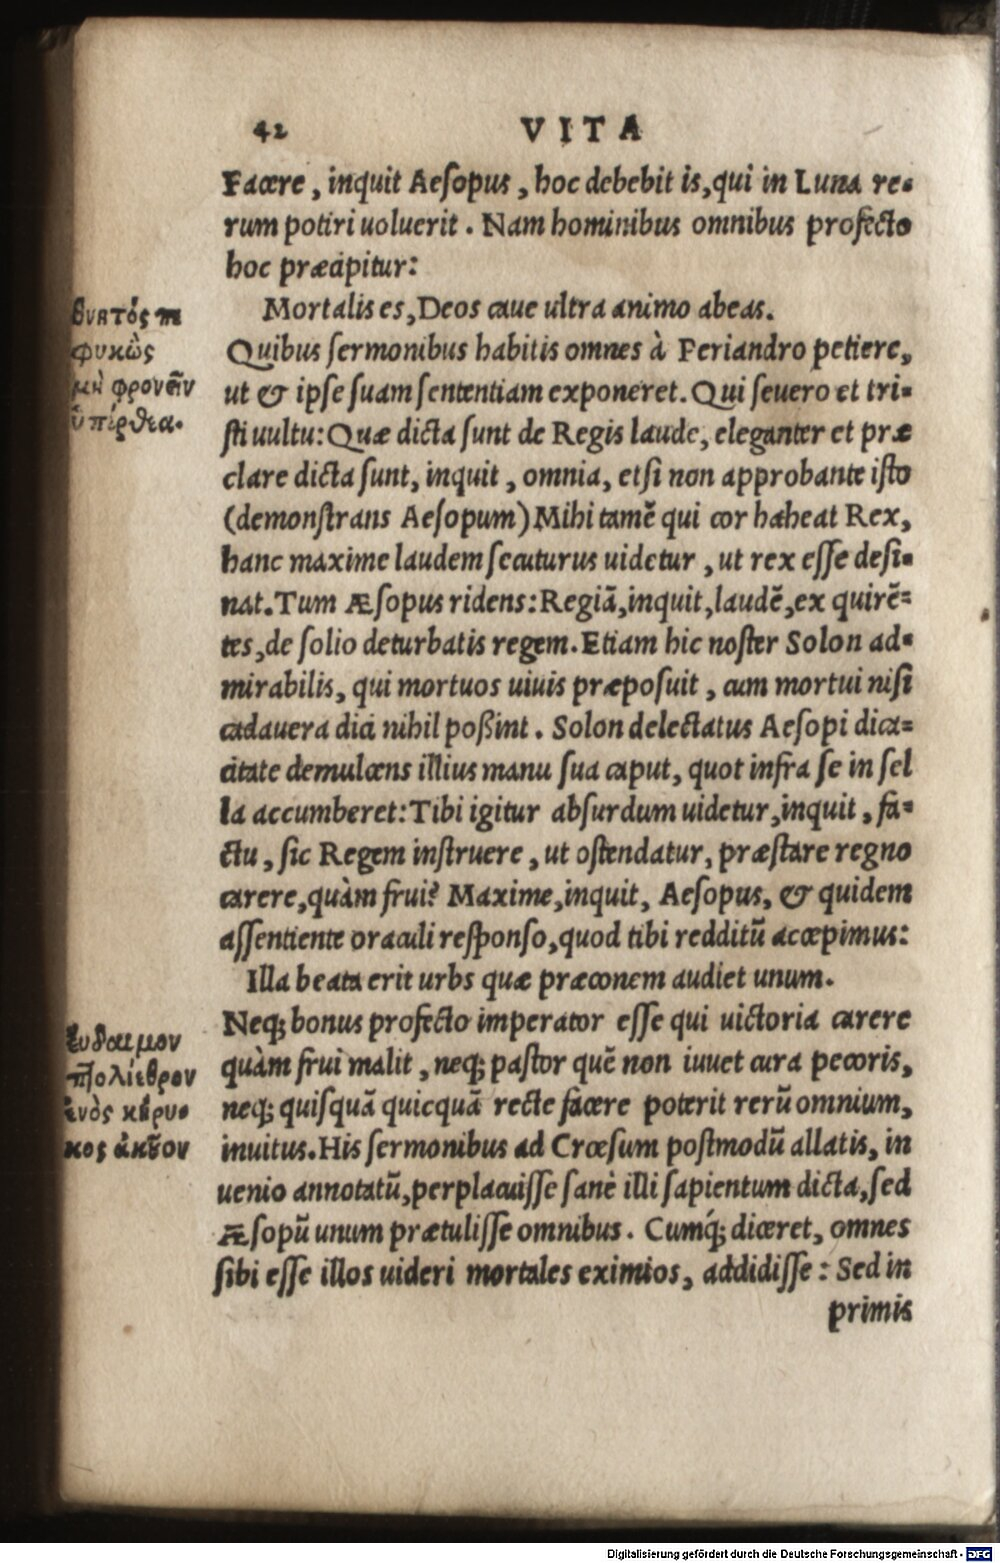 42 VITA
Facere, inquit Aesopus, hoc debebit is, qui in Luna re-
rum potiri uoluerit. Nam hominibus omnibus profecto
hoc præcipitur:
Mortalis es, Deos caue ultra animo abeas.
θνητός πε
φυκὼς
μὴ φρονεῖν
ὑπέρθεα.
Quibus sermonibus habitis omnes à Periandro petiere,
ut & ipse suam sententiam exponeret. Qui seuero et tri-
sti uultu: Quæ dicta sunt de Regis laude, eleganter et præ
clare dicta sunt, inquit, omnia, etsi non approbante isto
(demonstrans Aesopum) Mihi tamẽ qui cor habeat Rex,
hanc maxime laudem secuturus uidetur, ut rex esse desi-
nat. Tum Æsopus ridens: Regiã, inquit, laudẽ, ex quirẽ-
tes, de solio deturbatis regem. Etiam hic noster Solon ad-
mirabilis, qui mortuos uiuis præposuit, cum mortui nisi
cadauera dici nihil poßint. Solon delectatus Aesopi dica-
citate demulcens illius manu sua caput, quot infra se in sel
la accumberet: Tibi igitur absurdum uidetur, inquit, fa-
ctu, sic Regem instruere, ut ostendatur, præstare regno
carere, quàm frui? Maxime, inquit, Aesopus, & quidem
assentiente oraculi responso, quod tibi redditũ accepimus:
Illa beata erit urbs quæ præconem audiet unum.
Εὔδαιμον
πτολίεθρον
ἑνὸς κήρυ-
κος ἀκȣον
Neq; bonus profecto imperator esse qui uictoria carere
quàm frui malit, neq; pastor quẽ non iuuet cura pecoris,
neq; quisquã quicquã recte facere poterit rerũ omnium,
inuitus. His sermonibus ad Crœsum postmodũ allatis, in
uenio annotatũ, perplacuisse sanè illi sapientum dicta, sed
Æsopũ unum prætulisse omnibus. Cumq́; diceret, omnes
sibi esse illos uideri mortales eximios, addidisse: Sed in
primis
Digitalisierung gefördert durch die Deutsche Forschungsgemeinschaft - DFG